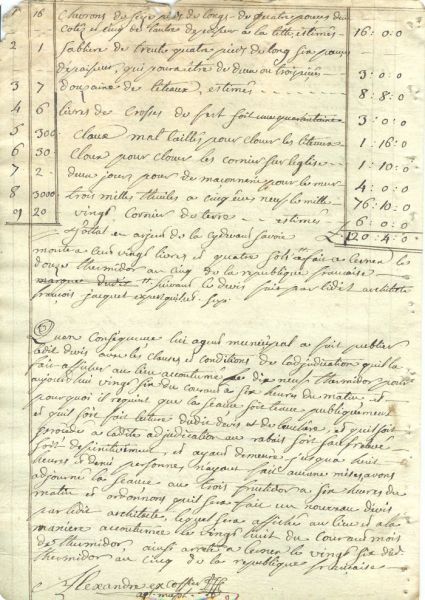 1 16 chevrons de seize pieds de longs de quatre pouces d'un
coté et cinq de l'autre 16: 0: 0
2 1 Sabliere de trente quatre pieds de long six pouces
d'epaisseur, qui poura être de deux ou trois pieces 3: 0: 0
3 7 douzaine de liteaux, estimés 8: 8: 0
4 6 livres de crosses de fert soit une quarantaine 3: 0: 0
5 300 claux mal taillés pour clouer les liteaux 1: 16: 0
6 30 cloux pour clouer les cornier sur leglise 1: 10: 0
7 2 deux jours pour de maçonnerie pour le mur 4: 0: 0
8 3000 trois milles thuiles a cinq neuf le mille 76: 10: 0
9 20 vingt cornier de terre estimés 6: 0: 0
Tottal en argent de la cydevant savoie 120: 4: 0
monte a cent vingt livres et quatre sols fait a cernex les
douze thermidor an cinq de la republique francaise
suivant le devis fait par ledit architecte
francois jacquet expert
6
L'en Conséquence lui agent municipal a fait publier
ledit devis avec les clauses et conditions de ladjudication qu'il a
fait afficher au lieu accoutumé le dix neuf thermidor pour
aujourdhui vingt six du courant a six heures du matin et
pourquoi il requiert que la seance soit tenue publiquement
et qu'il soit fait lecture dudit devis et qu'il soit
procédé a ladite adjudication au rabais
deffinitivement, et ayant demeuré jusqua huit
heures et demi personne n'ayant fait aucune mise avons
adjourné la seance au trois fructidor a six heures du
matin et ordonnons qu'il sera fait un nouveau devis
par ledit architecte, lequel sera affiche au lieu et a la
maniere accoutumée le vingt huit du courant mois
de thermidor, ainsi arreté a cernex le vingt six dud.
thermidor an cinq de la republique francaise
Alexandre
agt. mupal